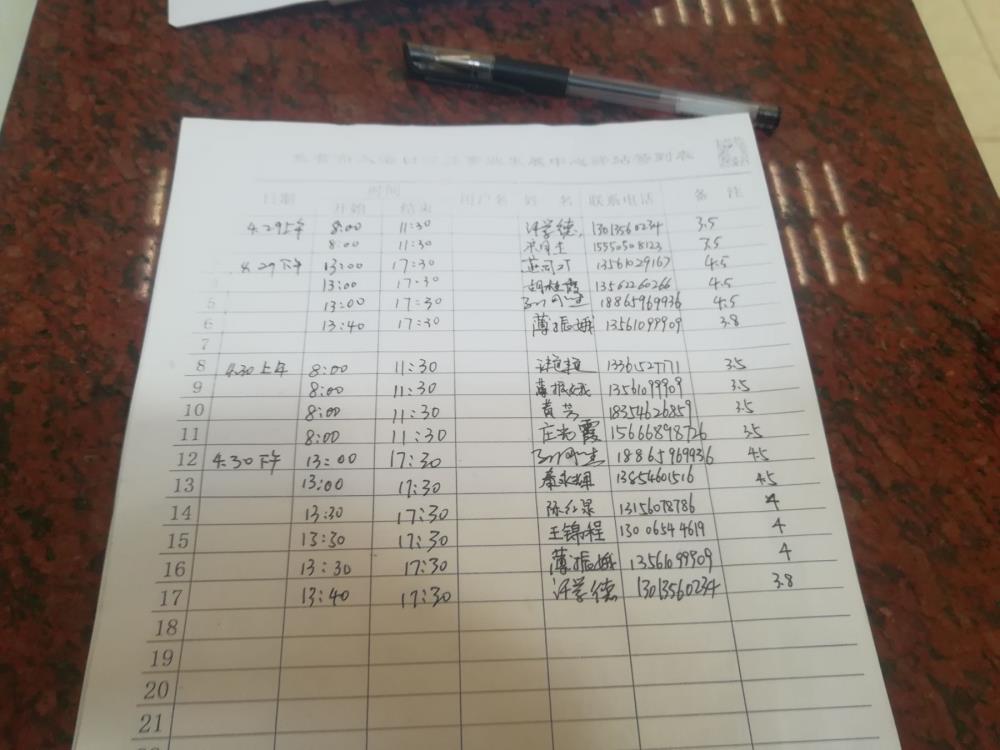 时间
日期 开始 结束 用户名 姓名 联系电话 备注
4.29上午 8:00 11:30 许学德 13013560234 3.5
8:00 11:30 15550508123 3.5
4.29下午 13:00 17:30 13561029167 4.5
13:00 17:30 胡桂霞 13562260266 4.5
5 13:00 17:30 18865969936 4.5
6 13:40 17:30 薄振娥 13561099909 3.8
7
8 4.30上午 8:00 11:30 13361527711 3.5
9 8:00 11:30 薄振娥 13561099909 3.5
10 8:00 11:30 黄芳 18354626859 3.5
11 8:00 11:30 庄光霞 15666898726 3.5
12 4.30下午 13:00 17:30 18865969936 4.5
13 13:00 17:30 秦永辉 13854601516 4.5
14 13:30 17:30 13156078786 4
15 13:30 17:30 王锦程 13006544619 4
16 13:30 17:30 薄振娥 13561099909 4
17 13:40 17:30 许学德 13013560234 3.8
18
19
20
21